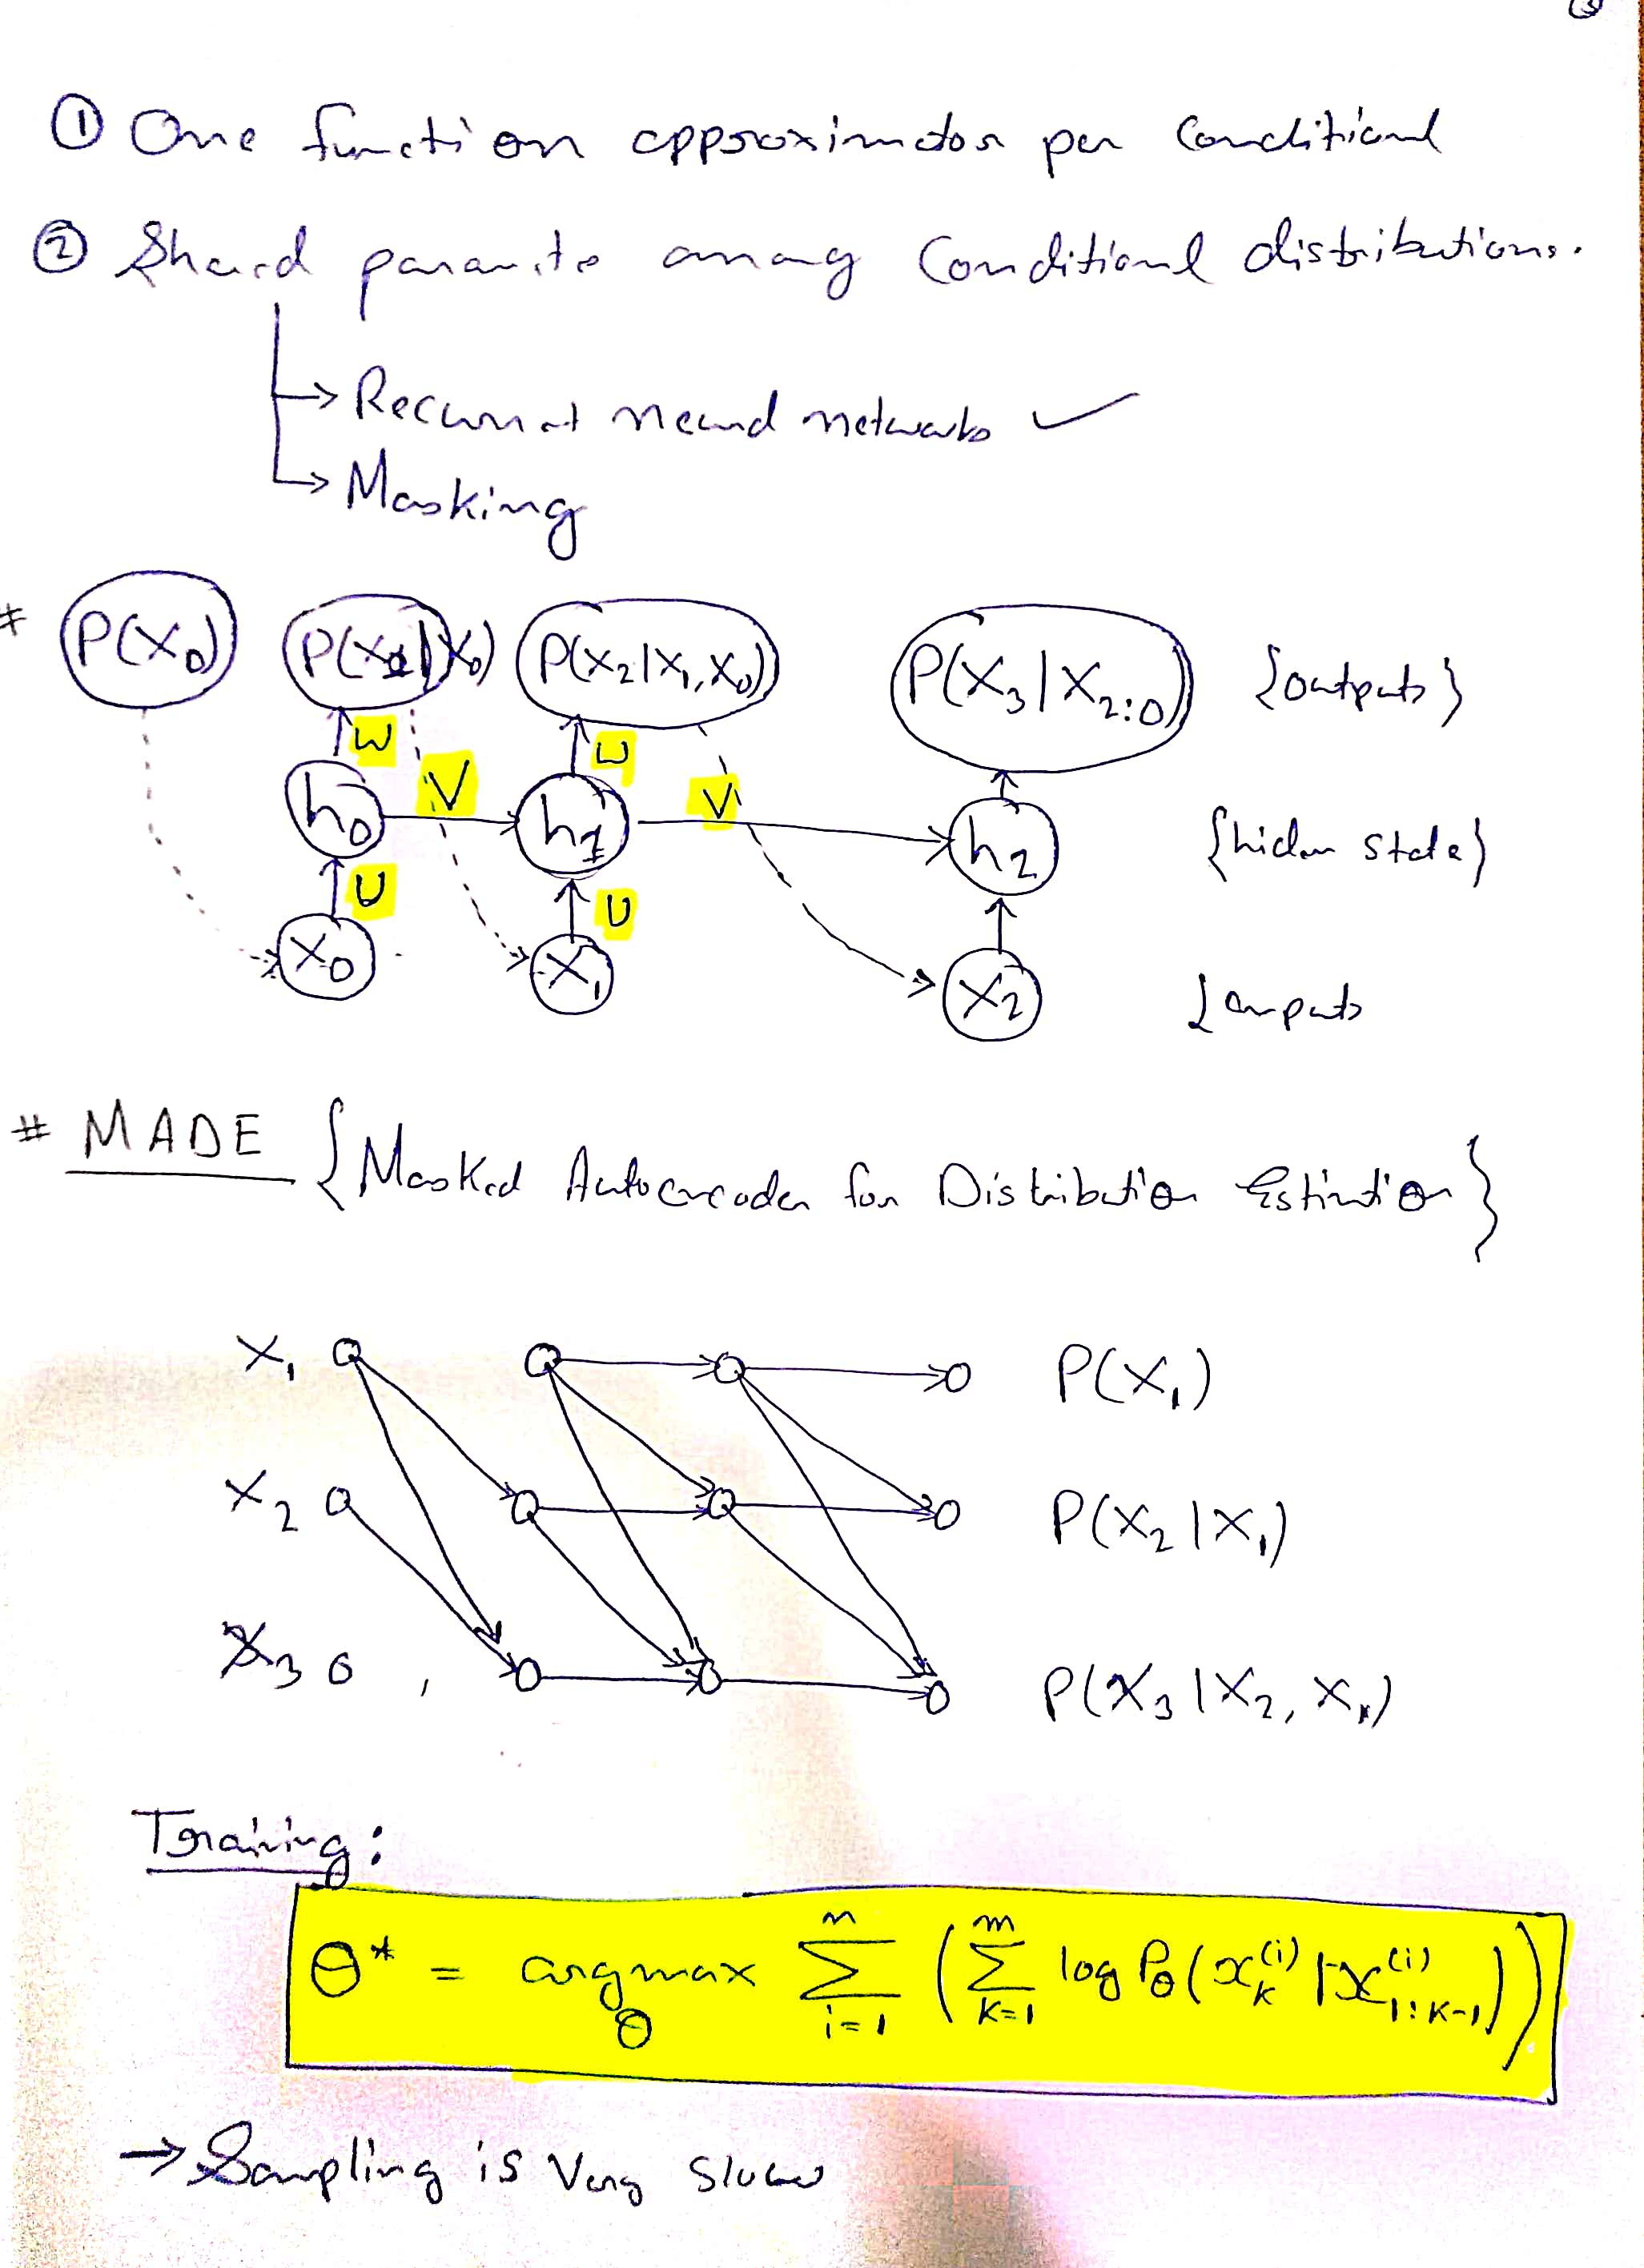 ① One function approximator per Conditional
② Shared parameters among Conditional distributions.
→ Recurrent neural networks ✓
→ Masking
# P(X₀) P(X₁|X₀) P(X₂|X₁,X₀) P(X₃|X₂:₀) {outputs}
W W
V V
h₀ h₁ h₂ {hidden state}
U U
X₀ X₁ X₂ {inputs
# MADE {Masked Autoencoder for Distribution Estimation}
X₁ P(X₁)
X₂ P(X₂|X₁)
X₃ P(X₃|X₂, X₁)
Training:
θ* = argmax_θ Σ_{i=1}^{n} (Σ_{k=1}^{m} log P_θ(x_k^{(i)} | x_{1:k-1}^{(i)}))
→ Sampling is Very slow